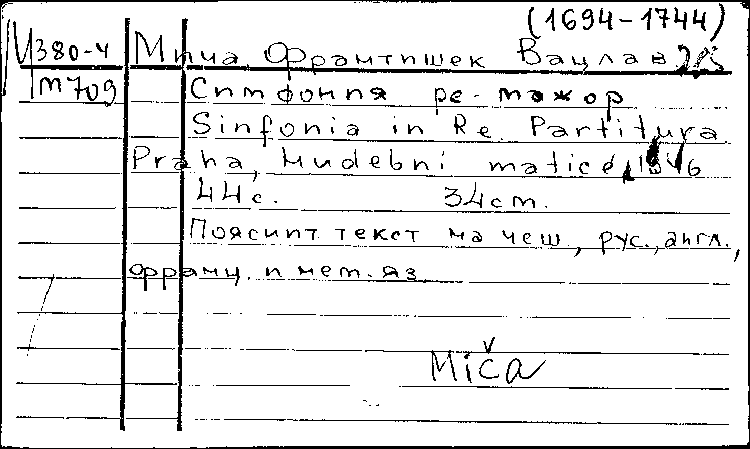 (1694-1744)
Ц380-4 Мича, Франтишек Вацлав
М709 Симфония ре-мажор
Sinfonia in Re. Partitura
Praha, Hudební matice, 1946
44с. 34см.
Пояснит. текст на чеш., рус., англ.,
франц. и нем. яз.
Míča